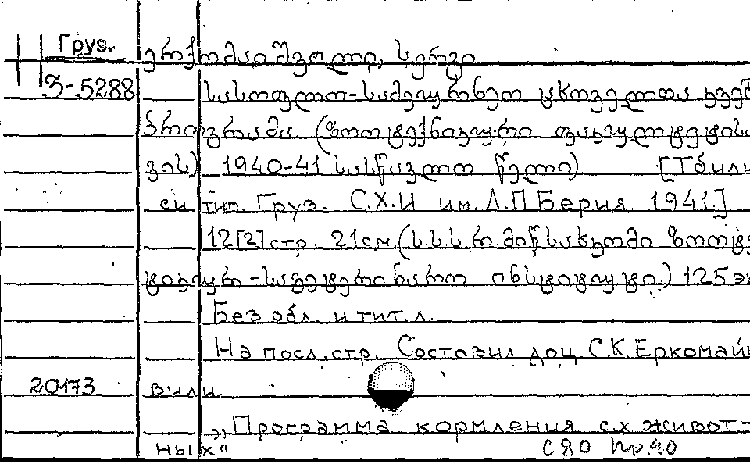 Груз. ერქომაიშვილი, სერგი
3-5288 სასოფლო-სამეურნეო ცხოველთა კვებ
პროგრამა (ზოოტექნიკური ფაკულტეტის
ვის) 1940-41 სასწავლო წელი) [Тбили
си тип. Груз. С.Х.И им. Л.П Берия 1941.]
12[2] стр. 21 см (სსსრ მიწსახკომი ზოოტე
ტიკური-სავეტერინარო ინსტიტუტი) 125 эк
Без обл. и тит. л.
На посл. стр. Составил доц. С.К. Еркомайш
20173 вили
→ „Программа кормления с.х. живот-
ных“ С 80 Пр. 40